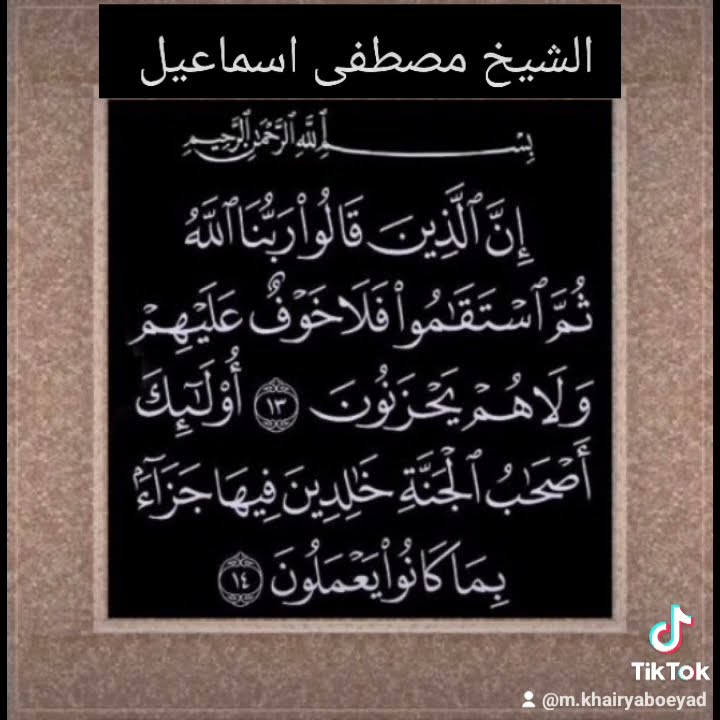 الشيخ مصطفى اسماعيل
بِسْمِ ٱللَّهِ ٱلرَّحْمَٰنِ ٱلرَّحِيمِ
إِنَّ ٱلَّذِينَ قَالُوا۟ رَبُّنَا ٱللَّهُ
ثُمَّ ٱسْتَقَٰمُوا۟ فَلَا خَوْفٌ عَلَيْهِمْ
وَلَا هُمْ يَحْزَنُونَ ١٣ أُو۟لَٰٓئِكَ
أَصْحَٰبُ ٱلْجَنَّةِ خَٰلِدِينَ فِيهَا جَزَآءًۢ
بِمَا كَانُوا۟ يَعْمَلُونَ ١٤
TikTok
@m.khairyaboeyad